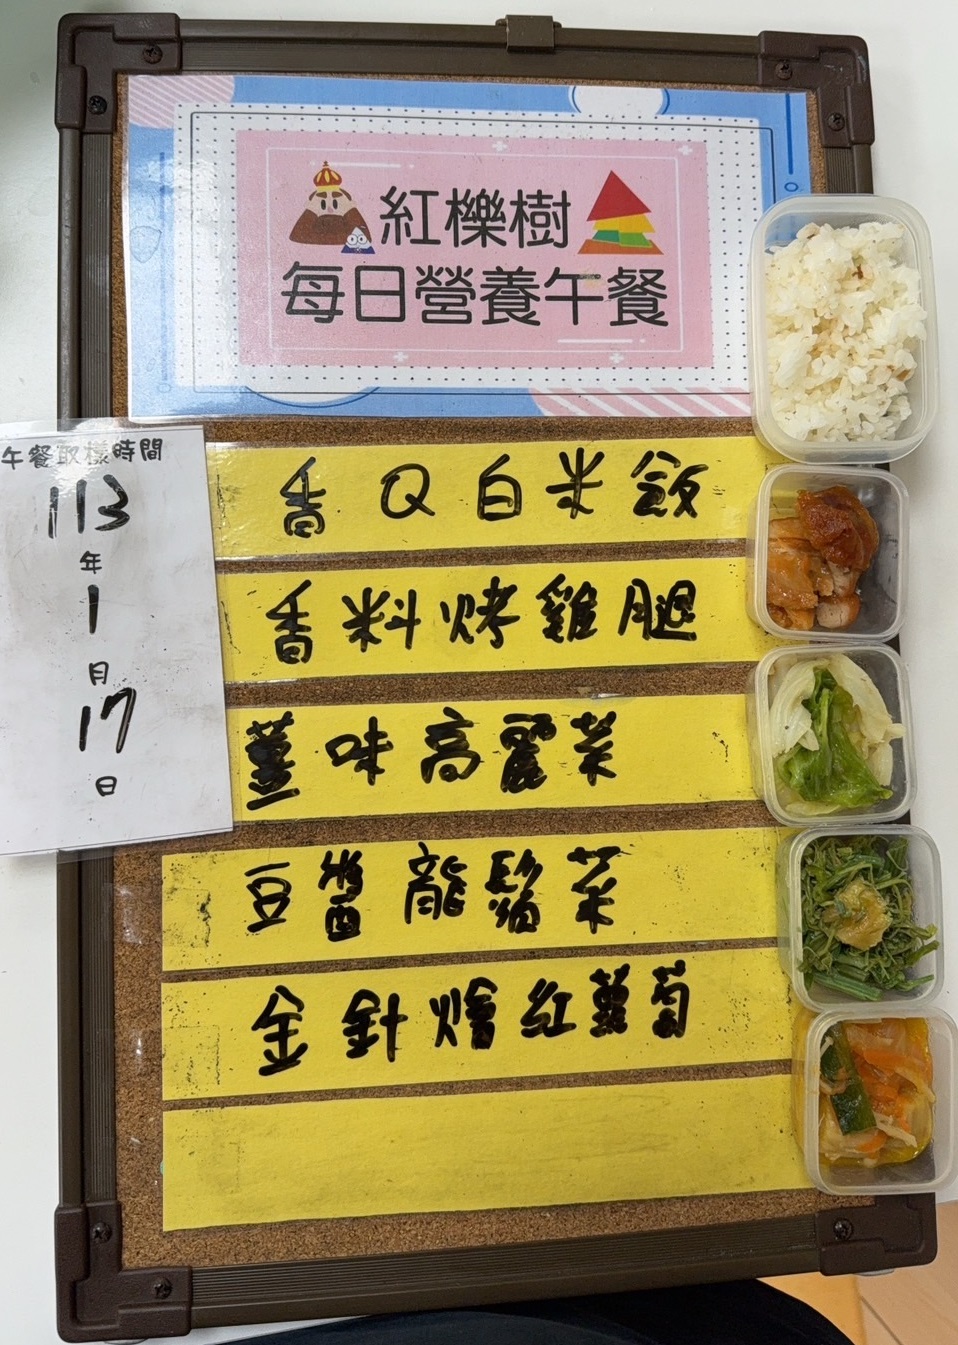 紅櫟樹
每日營養午餐
午餐取樣時間
113
年
1
月
17
日
香Q白米飯
香料烤雞腿
薑味高麗菜
豆醬龍鬚菜
金針燴紅蘿蔔